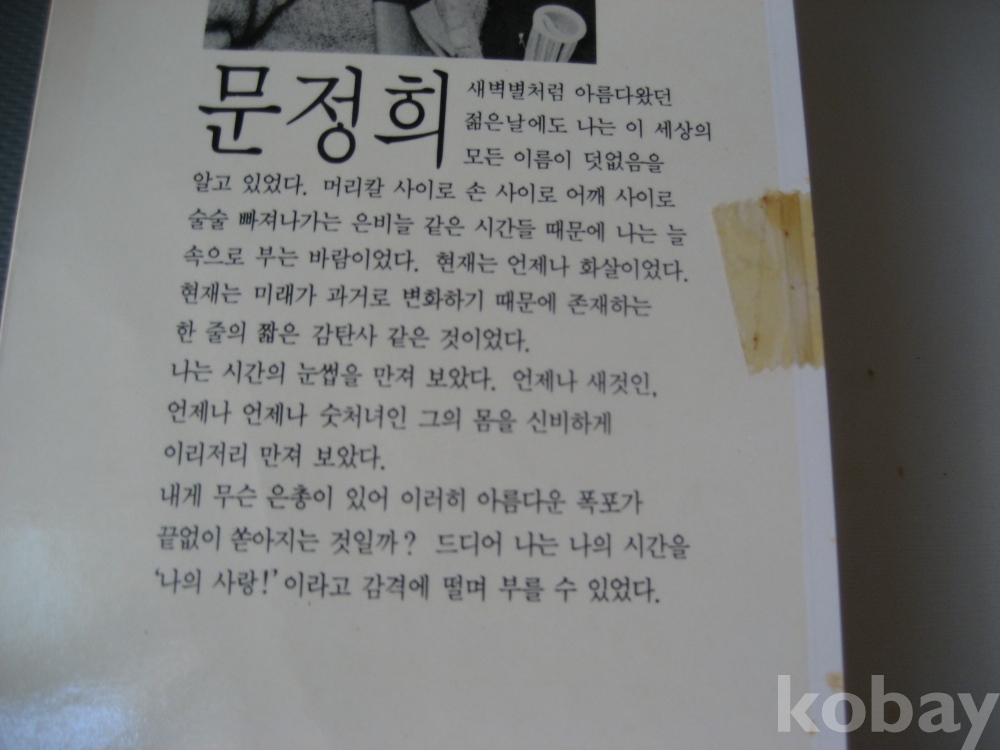 문정희
새벽별처럼 아름다왔던
젊은날에도 나는 이 세상의
모든 이름이 덧없음을
알고 있었다. 머리칼 사이로 손 사이로 어깨 사이로
술술 빠져나가는 은비늘 같은 시간들 때문에 나는 늘
속으로 부는 바람이었다. 현재는 언제나 화살이었다.
현재는 미래가 과거로 변화하기 때문에 존재하는
한 줄의 짧은 감탄사 같은 것이었다.
나는 시간의 눈썹을 만져 보았다. 언제나 새것인,
언제나 언제나 숫처녀인 그의 몸을 신비하게
이리저리 만져 보았다.
내게 무슨 은총이 있어 이러히 아름다운 폭포가
끝없이 쏟아지는 것일까? 드디어 나는 나의 시간을
‘나의 사랑!’이라고 감격에 떨며 부를 수 있었다.
kobay